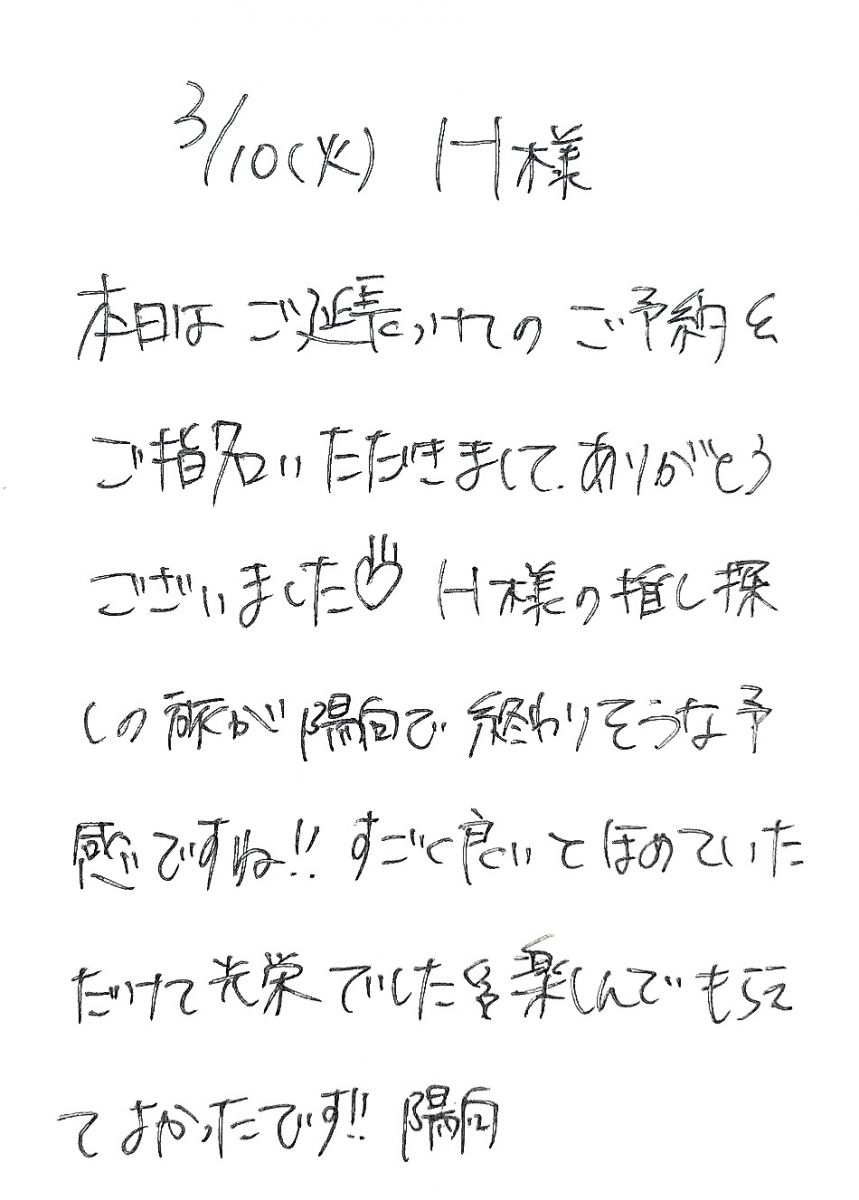 3/10(火) H様
本日は ご延長つけての ご予約を
ご指名いただきまして、ありがとう
ございました♡ H様の推し探
しの旅が陽向で終わりそうな予
感ですね!! すごく良いとほめていた
だけて光栄でした 楽しんでもらえ
てよかったです!! 陽向